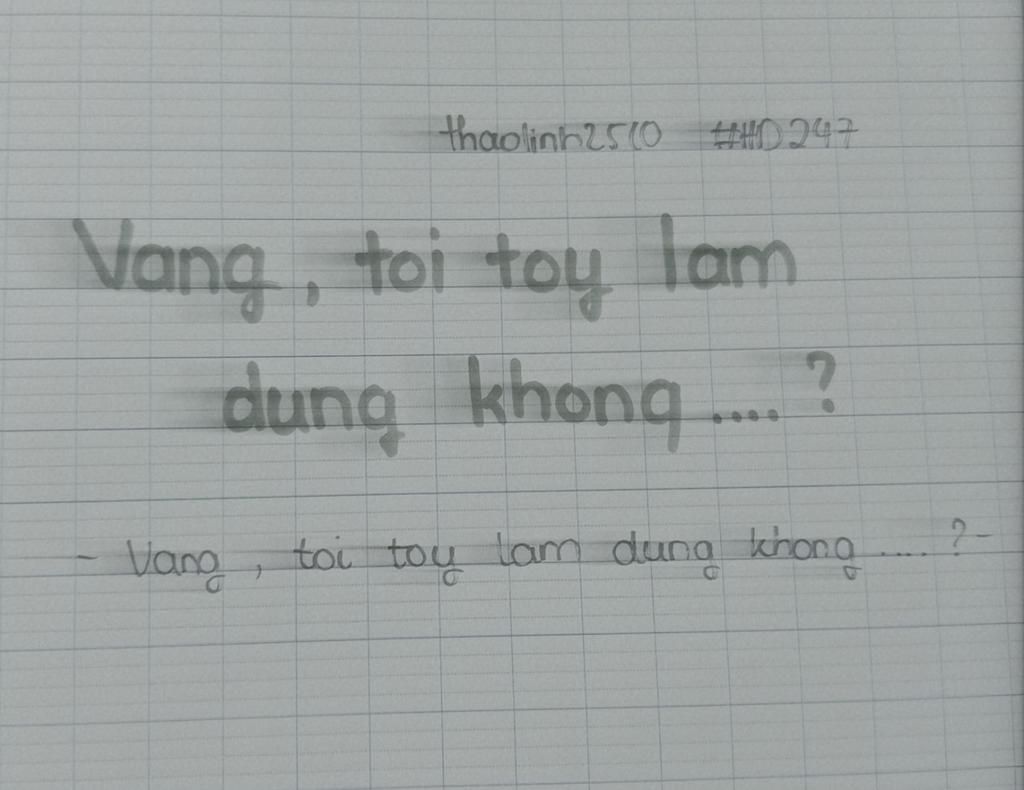 thaolinh2510 #HD247
Vang, toi toy lam
dung khong....?
- Vang, toi toy lam dung khong....?-